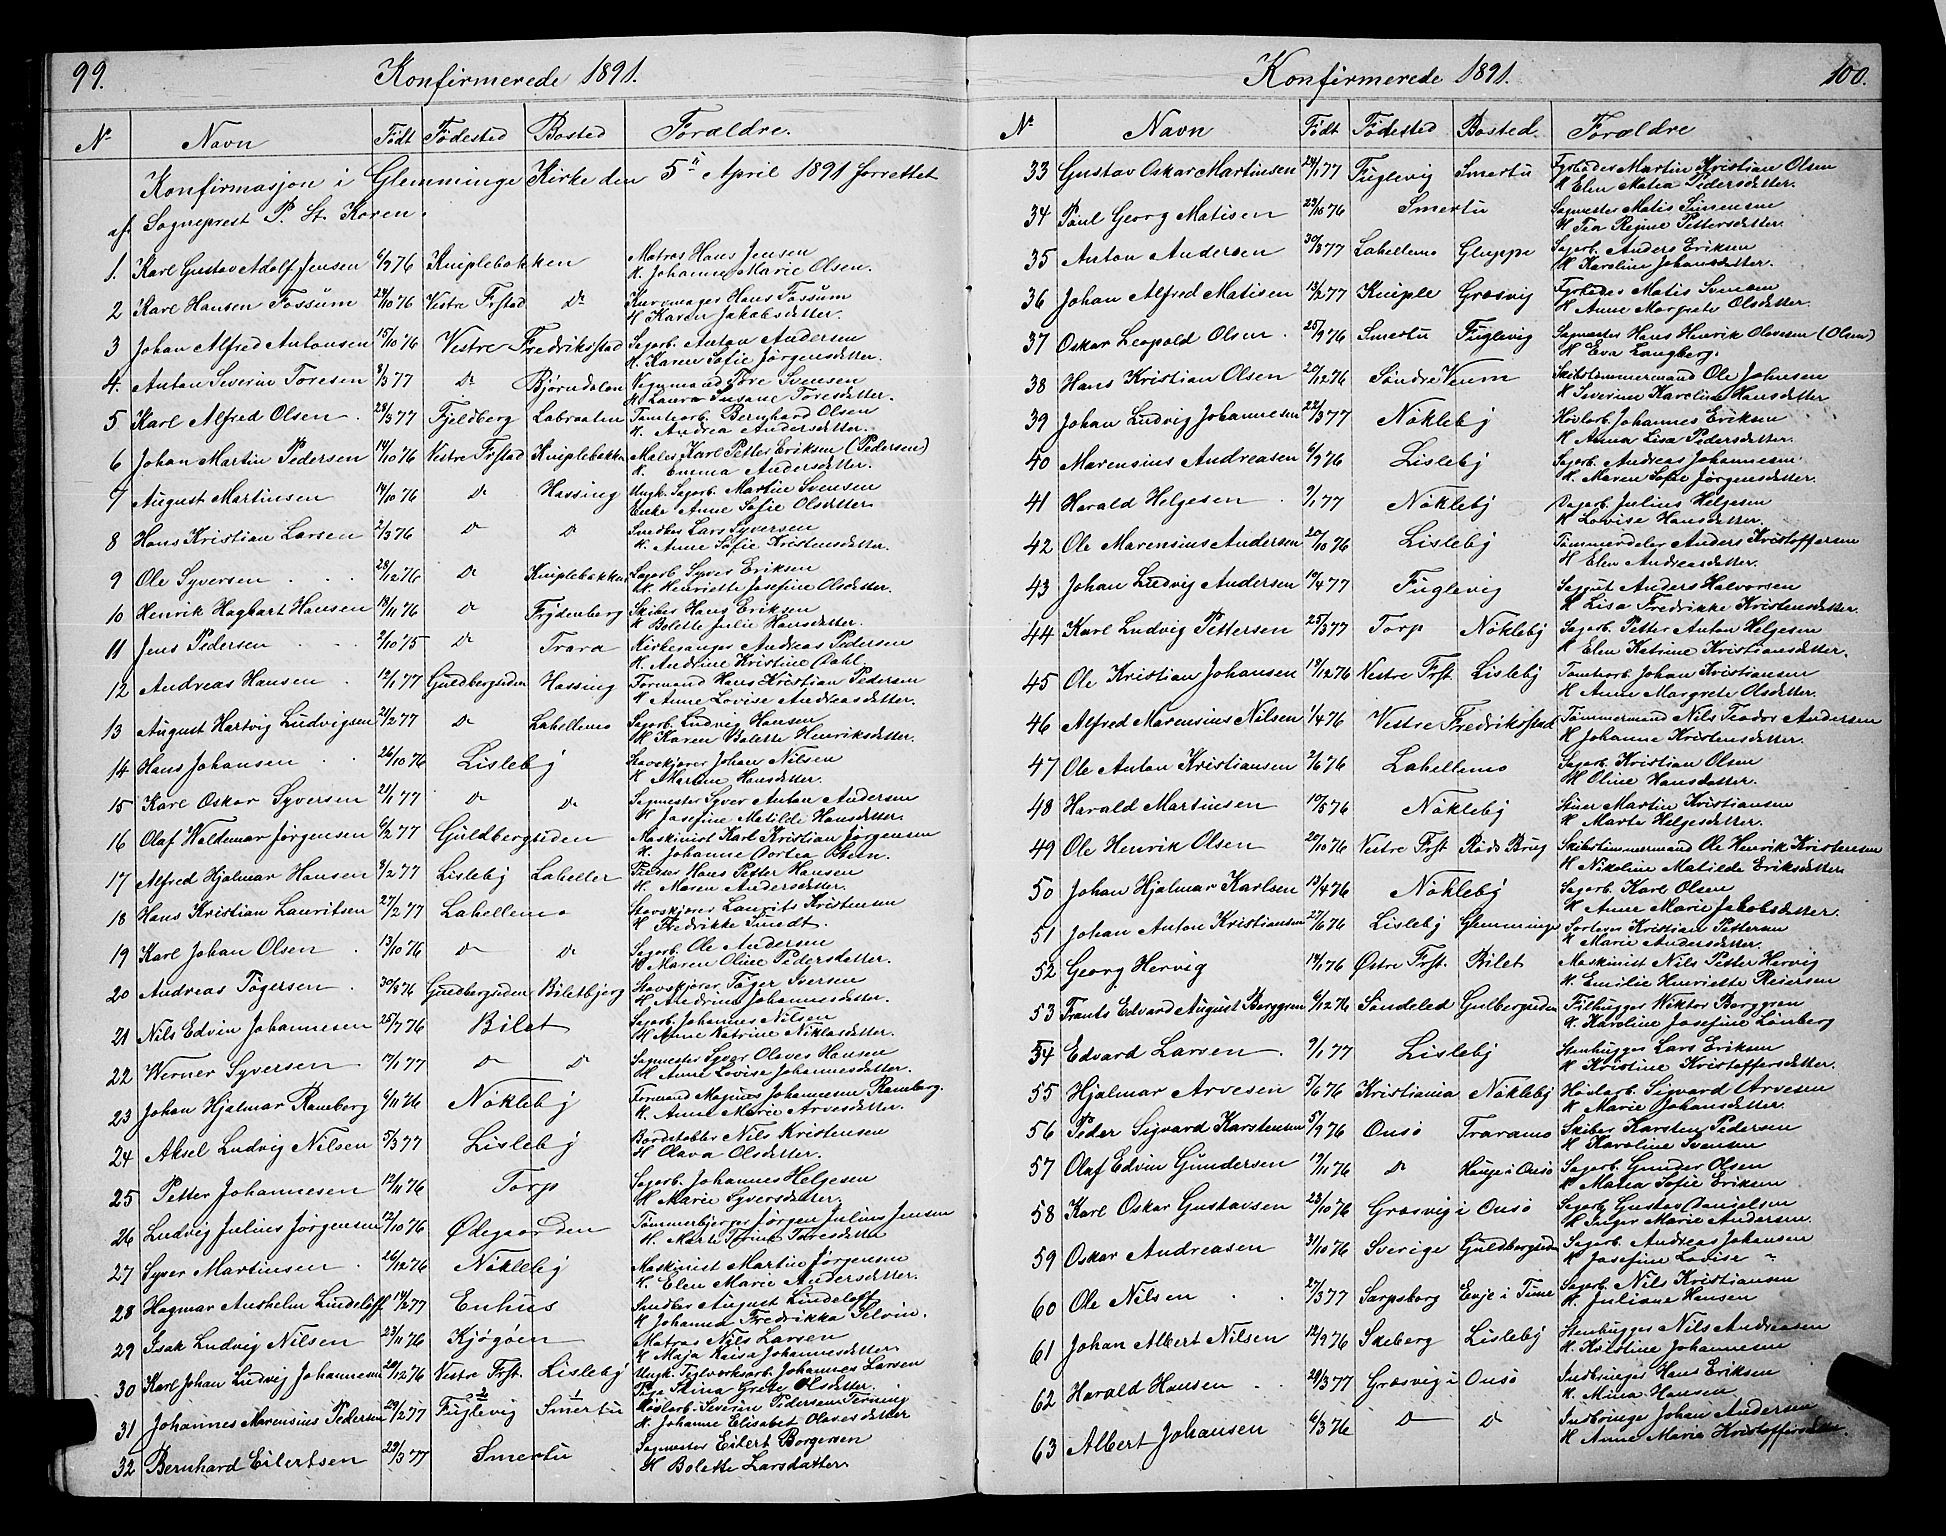 99. Konfirmerede 1891.
No Navn Født Fødested Bosted Forældre.
Konfirmasjon i Glemminge Kirke den 5te April 1891 forrettet
af Sogneprest P. St. Koren.
1. Karl Gustav Adolf Jensen 6/9 76 Kniplebakken Matros Hans Jensen
K. Johanne Marie Olsen.
2 Karl Hansen Fossum 24/10 76 Vestre Frstad Do Hans Fossum
K Karen Jakobsdatter.
3 Johan Alfred Antonsen 15/10 76 Vestre Fredrikstad Sagarb. Anton Andersen
K. Karen Sofie Jørgensdatter.
4. Anton Severin Toresen 3/3 77 Do Bjørndalen Tore Svensen
K Laura Susane Toresdatter.
5 Karl Alfred Olsen 28/3 77 Fjeldberg Labraaten Tomtearb. Bernhard Olsen
K. Andrea Andersdatter.
6 Johan Martin Pedersen 14/10 76 Vestre Frstad Kniplebakken Maler Karl Petter Eriksen (Pedersen)
K. Emma Andersdatter.
7 August Martinsen 14/10 76 Do Hassing Ungk. Sagarb. Martin Svensen
Enke Anne Sofie Olsdatter
8 Hans Kristian Larsen 2/3 76 Do Do Snedker Lars Syversen
K. Anne Sofie Kristensdatter.
9 Ole Syversen 28/12 76 Do Kniplebakken Sagarb. Syver Eriksen
K. Henriette Josefine Olsdatter.
10 Henrik Haghart Hansen 19/11 76 Do Frydenberg Skiber Hans Eriksen
K Bolette Julie Hansdatter.
11 Jens Pedersen 2/10 75 Do Trara Kirkesanger Andreas Pedersen
K. Andrine Kristine Dahl.
12 Andreas Hansen 12/1 77 Guldbergsiden Hassing Formand Hans Kristian Pedersen
K Anne Lovise Andreasdatter.
13 August Hartvig Ludvigsen 2/2 77 Do Lahellemo Sagarb. Ludvig Hansen
K Karen Bolette Henriksdatter.
14 Hans Johansen 26/10 76 Lisleby Stavskjører Johan Nilsen
K Martine Hansdatter.
15 Karl Oskar Syversen 21/1 77 Do Do Sagmester Syver Anton Andersen
K Josefine Matilde Hansdatter.
16 Olaf Waldemar Jørgensen 6/2 77 Guldbergsiden Maskinist Karl Kristian Jørgensen
K. Johanne Dortea Steen.
17 Alfred Hjalmar Hansen 3/2 77 Lisleby Laheller Hans Petter Hansen
K. Maren Andersdatter.
18 Hans Kristian Lauritsen 27/2 77 Lahellemo Stavskjører Laurits Kristensen
K Fredrikke Smedt.
19 Karl Johan Olsen 13/10 76 Do Do Sagarb. Ole Andersen
K Maren Oline Pedersdatter.
20 Andreas Tøgersen 30/8 76 Guldbergsiden Biletbjerg Stavskjører Tøger Iversen
K Andrine Johannesdatter.
21 Nils Edvin Johannesen 25/7 76 Bilet Sagarb. Johannes Nilsen
K Anne Katrine Niklasdatter.
22 Werner Syversen 17/1 77 Do Do Sagmester Syver Olaves Hansen
K Anne Lovise Johannesdatter.
23 Johan Hjalmar Ramberg 6/11 76 Nøkleby Formand Magnus Johannesen Ramberg.
K. Anne Marie Arvesdatter.
24 Aksel Ludvig Nilsen 5/3 77 Lisleby Bordstabler Nils Kristensen
K Olava Olsdatter.
25 Petter Johannesen 12/11 76 Torp Sagarb. Johannes Helgesen
K Marie Syversdatter.
26 Ludvig Julius Jørgensen 12/10 76 Ødegaarden Tømmerbjerger Jørgen Julius Jensen
K. Marte Torine Toresdatter
27 Syver Martinsen 26/12 76 Nøkleby Maskinist Martin Jørgensen
K. Elen Marie Andersdatter.
28 Hagmar Anshelm Lindeloff 14/2 77 Enhus Snedker August Lindeloff
K Johanna Fredrikka Selvin.
29 Isak Ludvig Nilsen 23/11 76 Kjøgøen Matros Nils Larsen
K Maja Kaisa Johannesdatter.
30 Karl Johan Ludvig Johannesen 20/12 76 Vestre Frst. Lisleby Ungk. Teglverksarb. Johannes Larsen
Pige Stina Grete Olsdatter.
31 Johannes Marensius Pedersen 29/2 77 Fuglevig Smertu Høvlarb. Severin Pedersen Torning
K. Johanne Elisabet Olavesdatter
32 Bernhard Eilertsen 29/3 77 Smertu Sagmester Eilert Borgersen
K Bolette Larsdatter.
Konfirmerede 1891. 100.
No Navn Født Fødested Bosted. Forældre
33 Gustav Oskar Martinsen 24/1 77 Fuglevig Smertu Fyrbøder Martin Kristian Olsen
K Elen Matea Pedersdatter.
34 Paul Georg Matisen 29/10 76 Smertu Sagmester Matis Simensen
K Tea Regine Pettersdatter.
35 Anton Andersen 30/3 77 Lahellemo Gluppe Sagarb. Anders Eriksen
K Karoline Johansdatter.
36 Johan Alfred Matisen 13/2 77 Kniple Græsvig Fyrbøder Matis Svensen
K Anne Margrete Olsdatter.
37 Oskar Leopold Olsen 25/9 76 Smertu Fuglevig Sagmester Hans Henrik Olavesen (Olsen)
K Eva Langberg.
38 Hans Kristian Olsen 20/12 76 Søndre Veum Skibstømmermand Ole Johnsen
K Severine Karoline Hansdatter
39 Johan Ludvig Johannesen 22/3 77 Nøkleby Høvlarb. Johannes Eriksen
K Anna Lisa Pedersdatter.
40 Marensius Andreasen 6/9 76 Lisleby Sagarb. Andreas Johannesen
K. Maren Sofie Jørgensdatter.
41 Harald Helgesen 9/1 77 Nøkleby Dagarb. Julius Helgesen
K Lovise Hansdatter.
42 Ole Marensius Andersen 20/10 76 Lisleby Tømmerdeler Anders Kristoffersen
K Elen Andreasdatter.
43 Johan Ludvig Andersen 17/4 77 Fuglevig Anders Halvorsen
K Lisa Fredrikke Kristensdatter.
44 Karl Ludvig Pettersen 25/3 77 Torp Nøkleby Sagarb. Petter Anton Helgesen
K Elen Katrine Kristiansdatter.
45 Ole Kristian Johansen 19/12 76 Vestre Frst. Lisleby Tomtearb. Johan Kristiansen
K Anne Margrete Olsdatter.
46 Alfred Marensius Nilsen 1/4 76 Vestre Fredrikstad Tømmermand Nils Teodor Andersen
K Johanne Kristensdatter.
47 Ole Anton Kristiansen 2/6 76 Lahellemo Sagarb. Kristian Olsen
K Oline Hansdatter.
48 Harald Martinsen 10/8 76 Nøkleby Martin Kristiansen
K Marte Helgesdatter.
49 Ole Henrik Olsen 20/10 76 Vestre Frst Røds Brug Skibstimmermand Ole Henrik Kristensen
K Nikoline Matilde Eriksdatter
50 Johan Hjalmar Karlsen 13/4 76 Nøkleby Sagarb. Karl Olsen
K Anne Marie Jakobsdatter.
51 Johan Anton Kristiansen 27/6 76 Lisleby Glemminge Kristian Pettersen
K Marie Andersdatter.
52 Georg Hervig 14/1 76 Østre Frst. Bilet Maskinist Nils Petter Hervig
K. Emilie Henriette Reiersen
53 Frants Edvard August Borggren 6/12 76 Søndeled Gulbergsiden Filhugger Wiktor Borggren
K. Karoline Josefine Lønberg
54 Edvard Larsen 9/1 77 Lisleby Stenhugger Lars Eriksen
K Kristine Kristoffersdatter.
55 Hjalmar Arvesen 5/6 76 Kristiania Nøkleby Høvlarb. Sigvard Arvesen
K Marie Johansdatter.
56 Peder Sigvard Karstensen 5/9 76 Onsø Traramo Skiber Karsten Pedersen
K Karoline Svensen
57 Olaf Edvin Gundersen 17/11 76 Do Hauge i Onsø Sagarb. Gunder Olsen
K Matea Sofie Eriksen
58 Karl Oskar Gustavsen 23/10 76 Græsvig i Onsø Sagarb Gustav Danielsen
K Inger Marie Andersen.
59 Oskar Andreasen 31/10 76 Sverige Guldbergsiden Sagarb. Andreas Johansen
K Josefine Lovise "
60 Ole Nilsen 27/3 77 Sarpsborg Enje i Tune Sagarb Nils Kristiansen
K. Juliane Hansen
61 Johan Albert Nilsen 12/9 76 Skeberg Lisleby Stenhugger Nils Andreasen
K. Kristine Johannesen
62 Harald Hansen 28/3 77 Græsvig i Onsø Indbringer Hans Eriksen
K. Mina Hansen
63 Albert Johansen 6/3 76 Do Do Johan Andersen
K Anne Marie Kristoffersdatter.